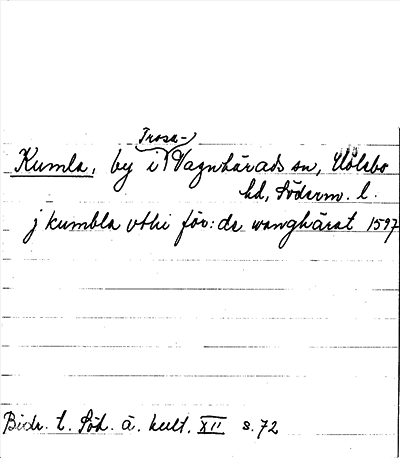 Trosa-
Kumla, by i Vagnhärads sn, Hölebo
hd, Söderm. l.
j kumbla vthi för:de wanghärat 1597
Bidr. t. Söd. ä. kult. XII s. 72